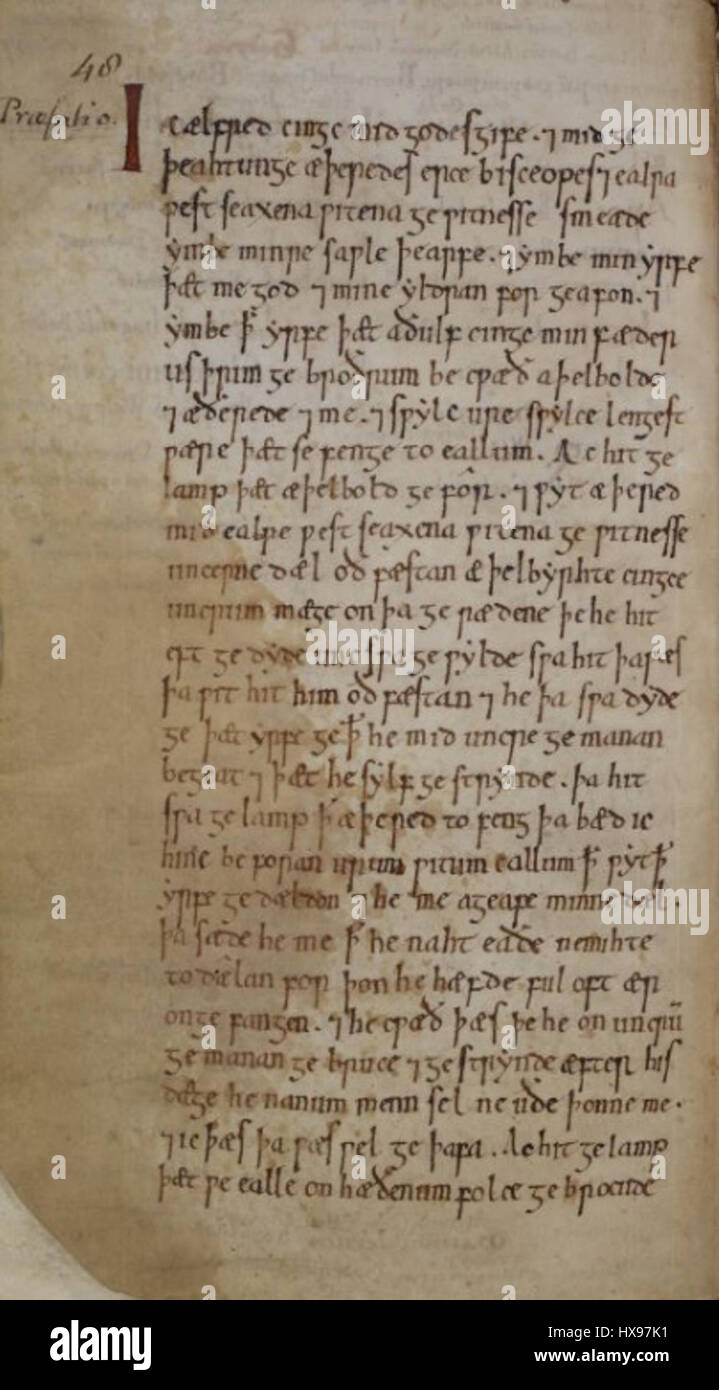 48
Præfatio.
Ic ælfred cinge mid godes gife. ⁊ mid ge
þeahtunge æþeredes erce bisceopes ⁊ ealra
west seaxena witena ge witnesse smeade
ymbe minre saple þearfe. ⁊ ymbe min yrfe
þæt me god ⁊ mine yldran for geafon. ⁊
ymbe ꝥ yrfe þæt aðulf cinge min fæder
us þrim ge broðrum be cwæð aþelbolde
⁊ æðerede ⁊ me. ⁊ swylc ure swylce lengest
wære þæt se fenge to eallum. Ac hit ge
lamp þæt æþelbold ge for. ⁊ wyt æþered
mid ealre west seaxena witena ge witnesse
uncerne dæl oð fæstan æþelbyrhte cingce
uncrum mæge on þa ge rædene þe he hit
eft ge dyde unc swa ge wylde swa hit þa wæs
þa wit hit him oð fæstan ⁊ he þa swa dyde
ge þæt yrfe ge ꝥ he mid uncre ge manan
begeat ⁊ þæt he sylf ge strynde. þa hit
swa ge lamp ꝥ æþered to feng þa bæd ic
hine be foran urum witum eallum ꝥ wyt ꝥ
yrfe ge dældon ⁊ he me ageafe minne dæl.
þa sæde he me ꝥ he naht eaðe ne mihte
to dælan for þon he hæfde ful oft ær
onge fangen. ⁊ he cwæð þæs þe he on uncrū
ge manan ge bruce ⁊ ge strynde æfter his
dæge he nanum menn sel ne uðe þonne me.
⁊ ic þæs þa wæs wel ge þafa. Ac hit gelamp
þæt we ealle on hæðenum folce ge brocude
alamy
Image ID: HX97K1
www.alamy.com